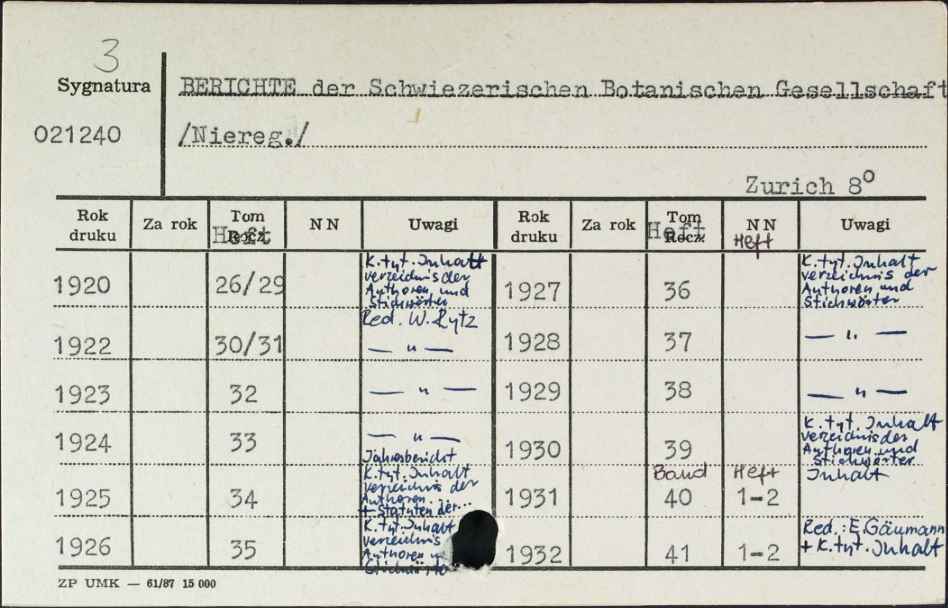 3
Sygnatura
BERICHTE der Schwiezerischen Botanischen Gesellschaft
021240
/Niereg./
Zurich 8°
Rok druku Za rok Tom Rocz. Heft NN Uwagi Rok druku Za rok Tom Rocz. Heft NN Heft Uwagi
1920 26/29 K. tyt. Inhalt
verzeichnis der
Authoren und
Stichwörter
Red. W. Rytz
1922 30/31 — " —
1923 32 — " —
1924 33 — " —
Jahresbericht
1925 34 K. tyt. Inhalt
verzeichnis der
Authoren...
+ Statuten der...
1926 35 K. tyt. Inhalt
verzeichnis
Authoren
1927 36 K. tyt. Inhalt
verzeichnis der
Authoren und
Stichwörter
1928 37 — " —
1929 38 — " —
1930 39 K. tyt. Inhalt
verzeichnis der
Authoren und
Stichwörter
Band Heft
1931 40 1-2 Inhalt
1932 41 1-2 Red.: E. Gäumann
+ K. tyt. Inhalt
ZP UMK — 61/87 15 000